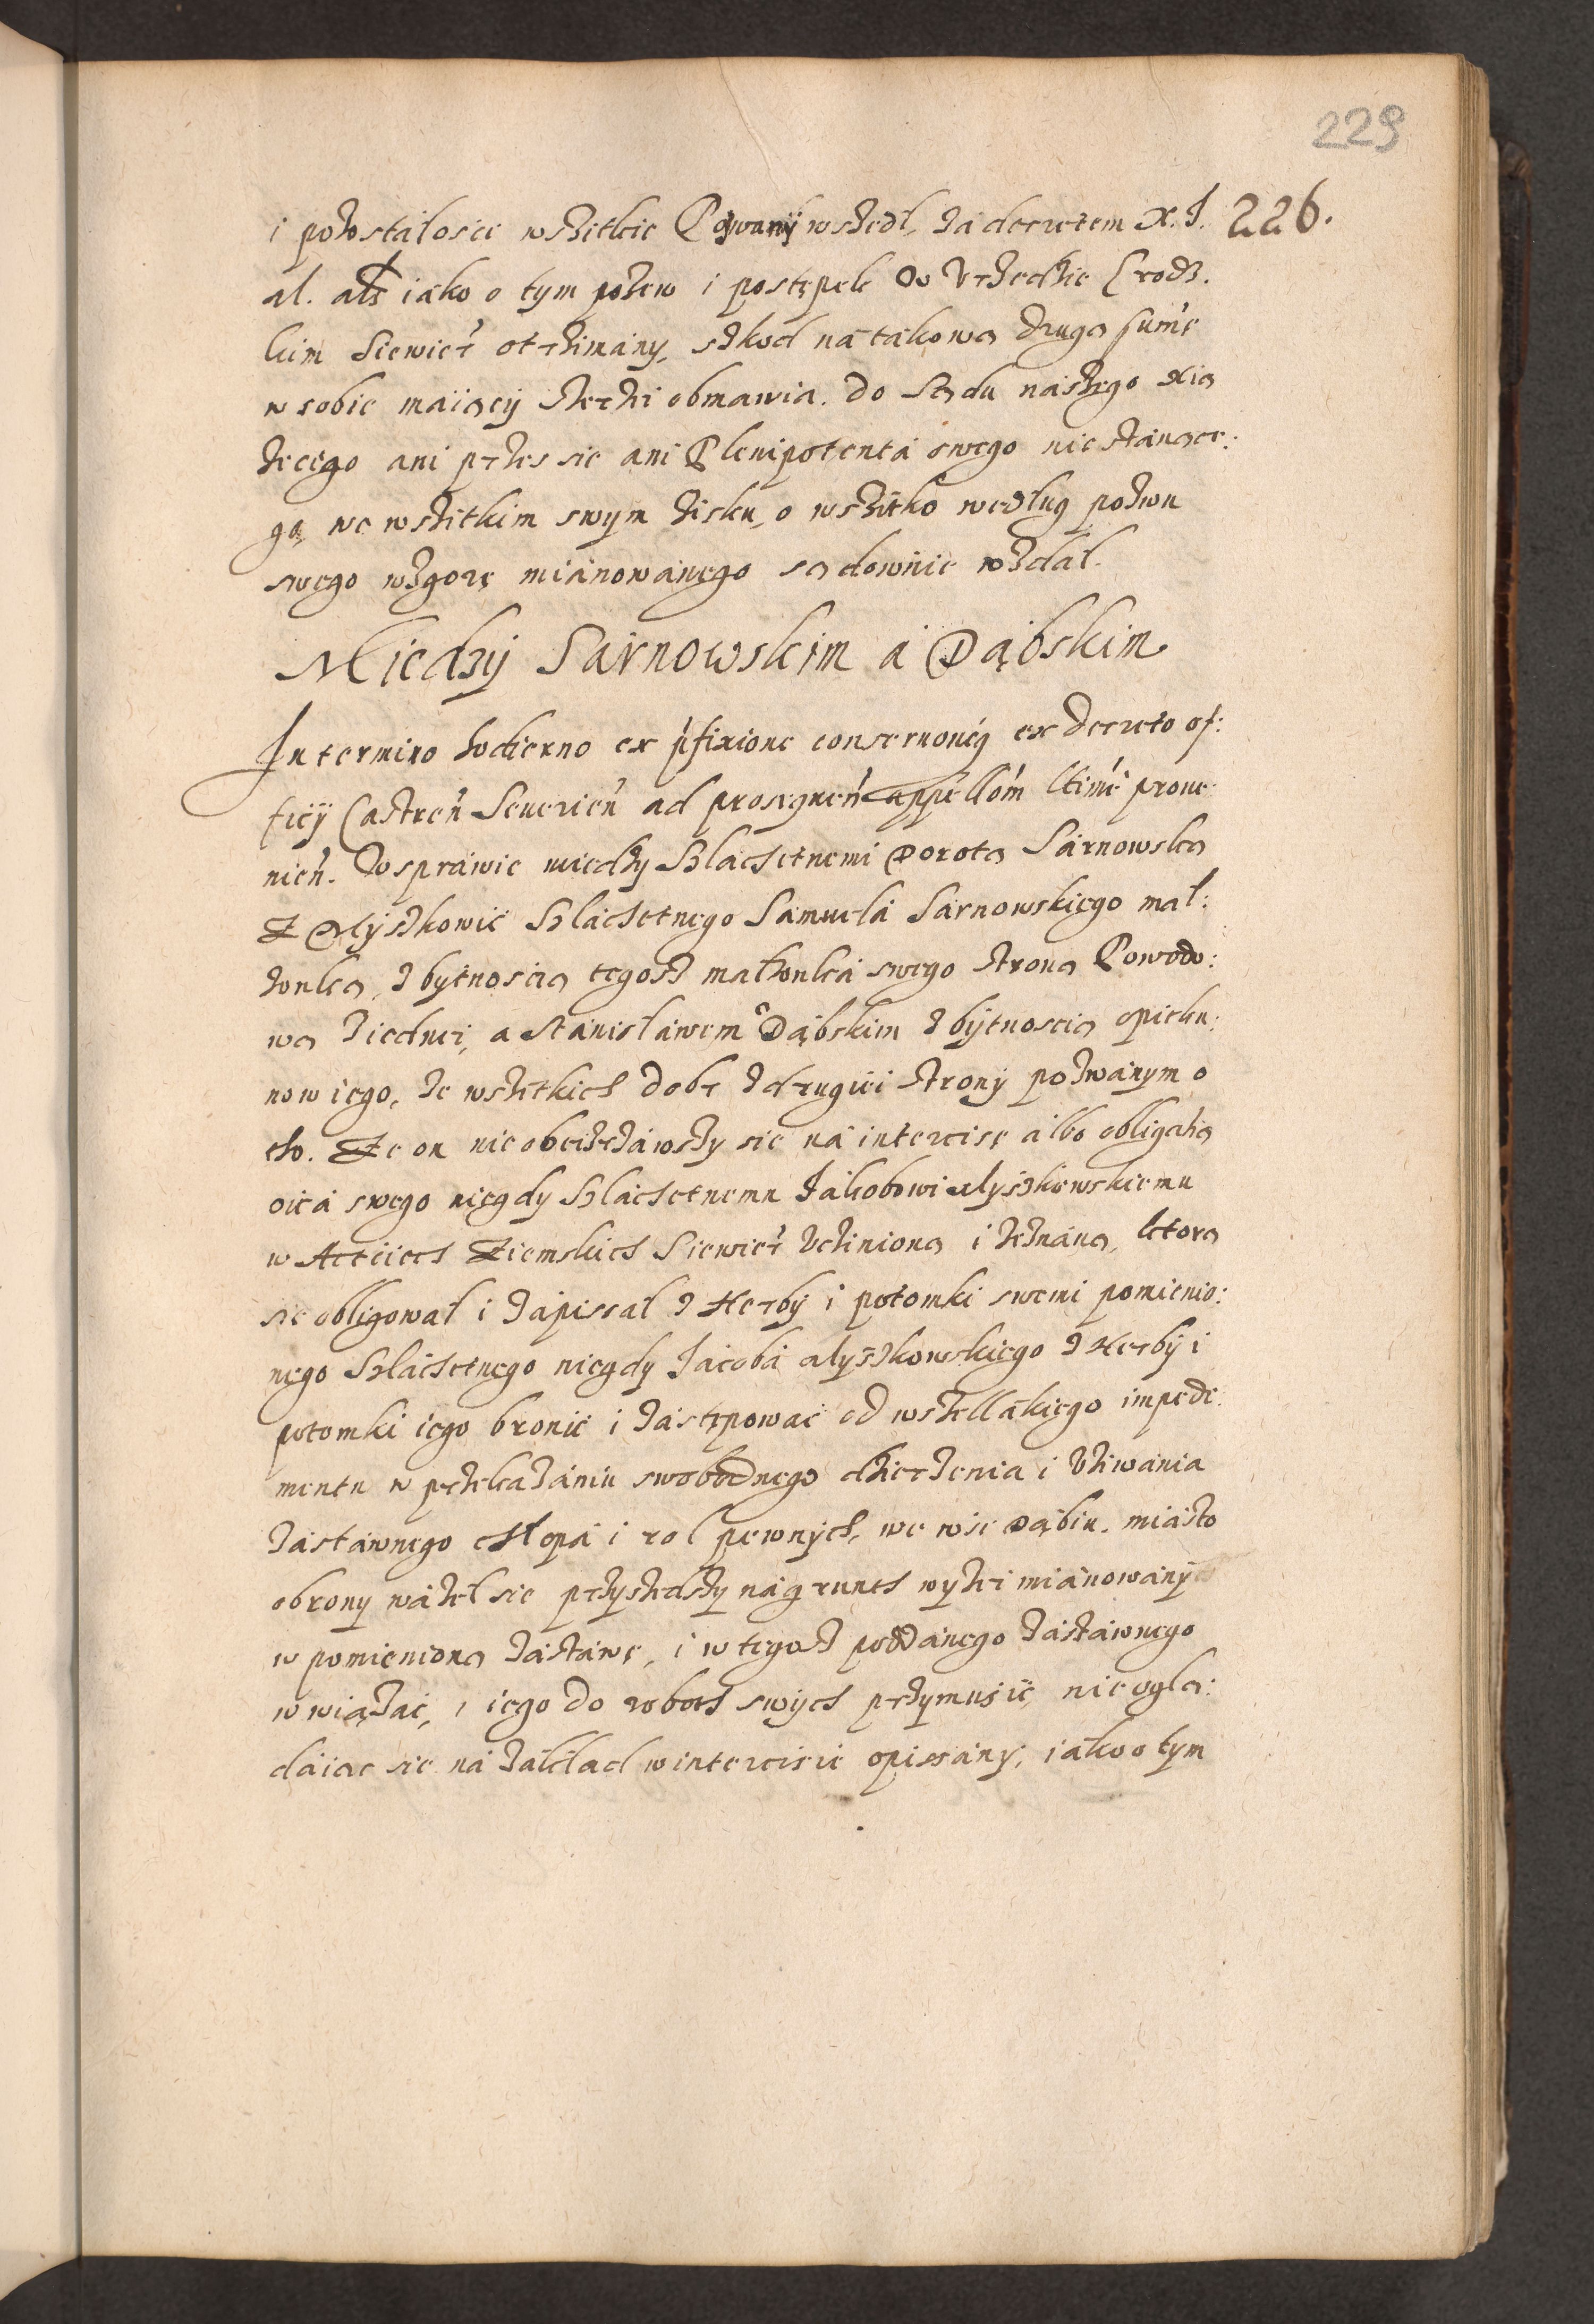 229
226.
i pozostałoscie wszitkie Pozwanij wszedł, za decretem X. J.
al. als iako o tym pozew i postępek w Vrzedzie Grodz.
kim Siewier otrzimany, szkod na takową drugą sumę
w sobie maiący szerzi obmawia. Do Sądu naszego xią
żecego ani przes sie ani Plenipotenta swego nie stanące:
go, we wszitkim swym zisku, o wszitko według pozwu
swego wzgorę mianowanego sądownie wzdał.
Miedzij Sarnowskim a Dąbskim
In termino hodierno ex pfixione conservoneq ex decreto of:
ficij Castren Severien ad prosequen appellom ltime prove
nien. W sprawie miedzy Szlachetnemi Dorotą Sarnowską
Z Myszkowic Szlachetnego Samuela Sarnowskiego mał:
żonką, z bytnoscią tegosz małżonka swego stroną Powodo:
wą z iednei, a Stanisławem Dąbskim z bijtnoscią opieku:
now iego, ze wszitkich dobr z drugiei strony pozwanym o
to. Ze on nieobeizrzawszy sie na intercisę albo obligatią
oica swego niegdy Szlachetnemu Jakobowi Myszkowskiemu
w Acticiech Ziemskich Siewier vcziniona i zeznana, ktorą
sie obligował i zapissał z Herby i potomki swemi pomienio:
nego Szlachetnego niegdy Jacoba Myszkowskiego z Herbÿ i
potomki iego bronić i zastępowac od wszellakiego impedi:
mentu w przekazaniu swobodnego dzierżenia i vżiwania
zastawnego chłopa i rol pewnych, we wsi Dąbiu. miasto
obrony ważel sie przyszedszy na grunth wyżei mianowany
w pomieniona zastawę, i w tegosz poddanego zastawnego
wwiązać, i iego do roboth swych przymusić, nie oglą:
daiąc sie na zakład w intercisie opissany, iako o tym